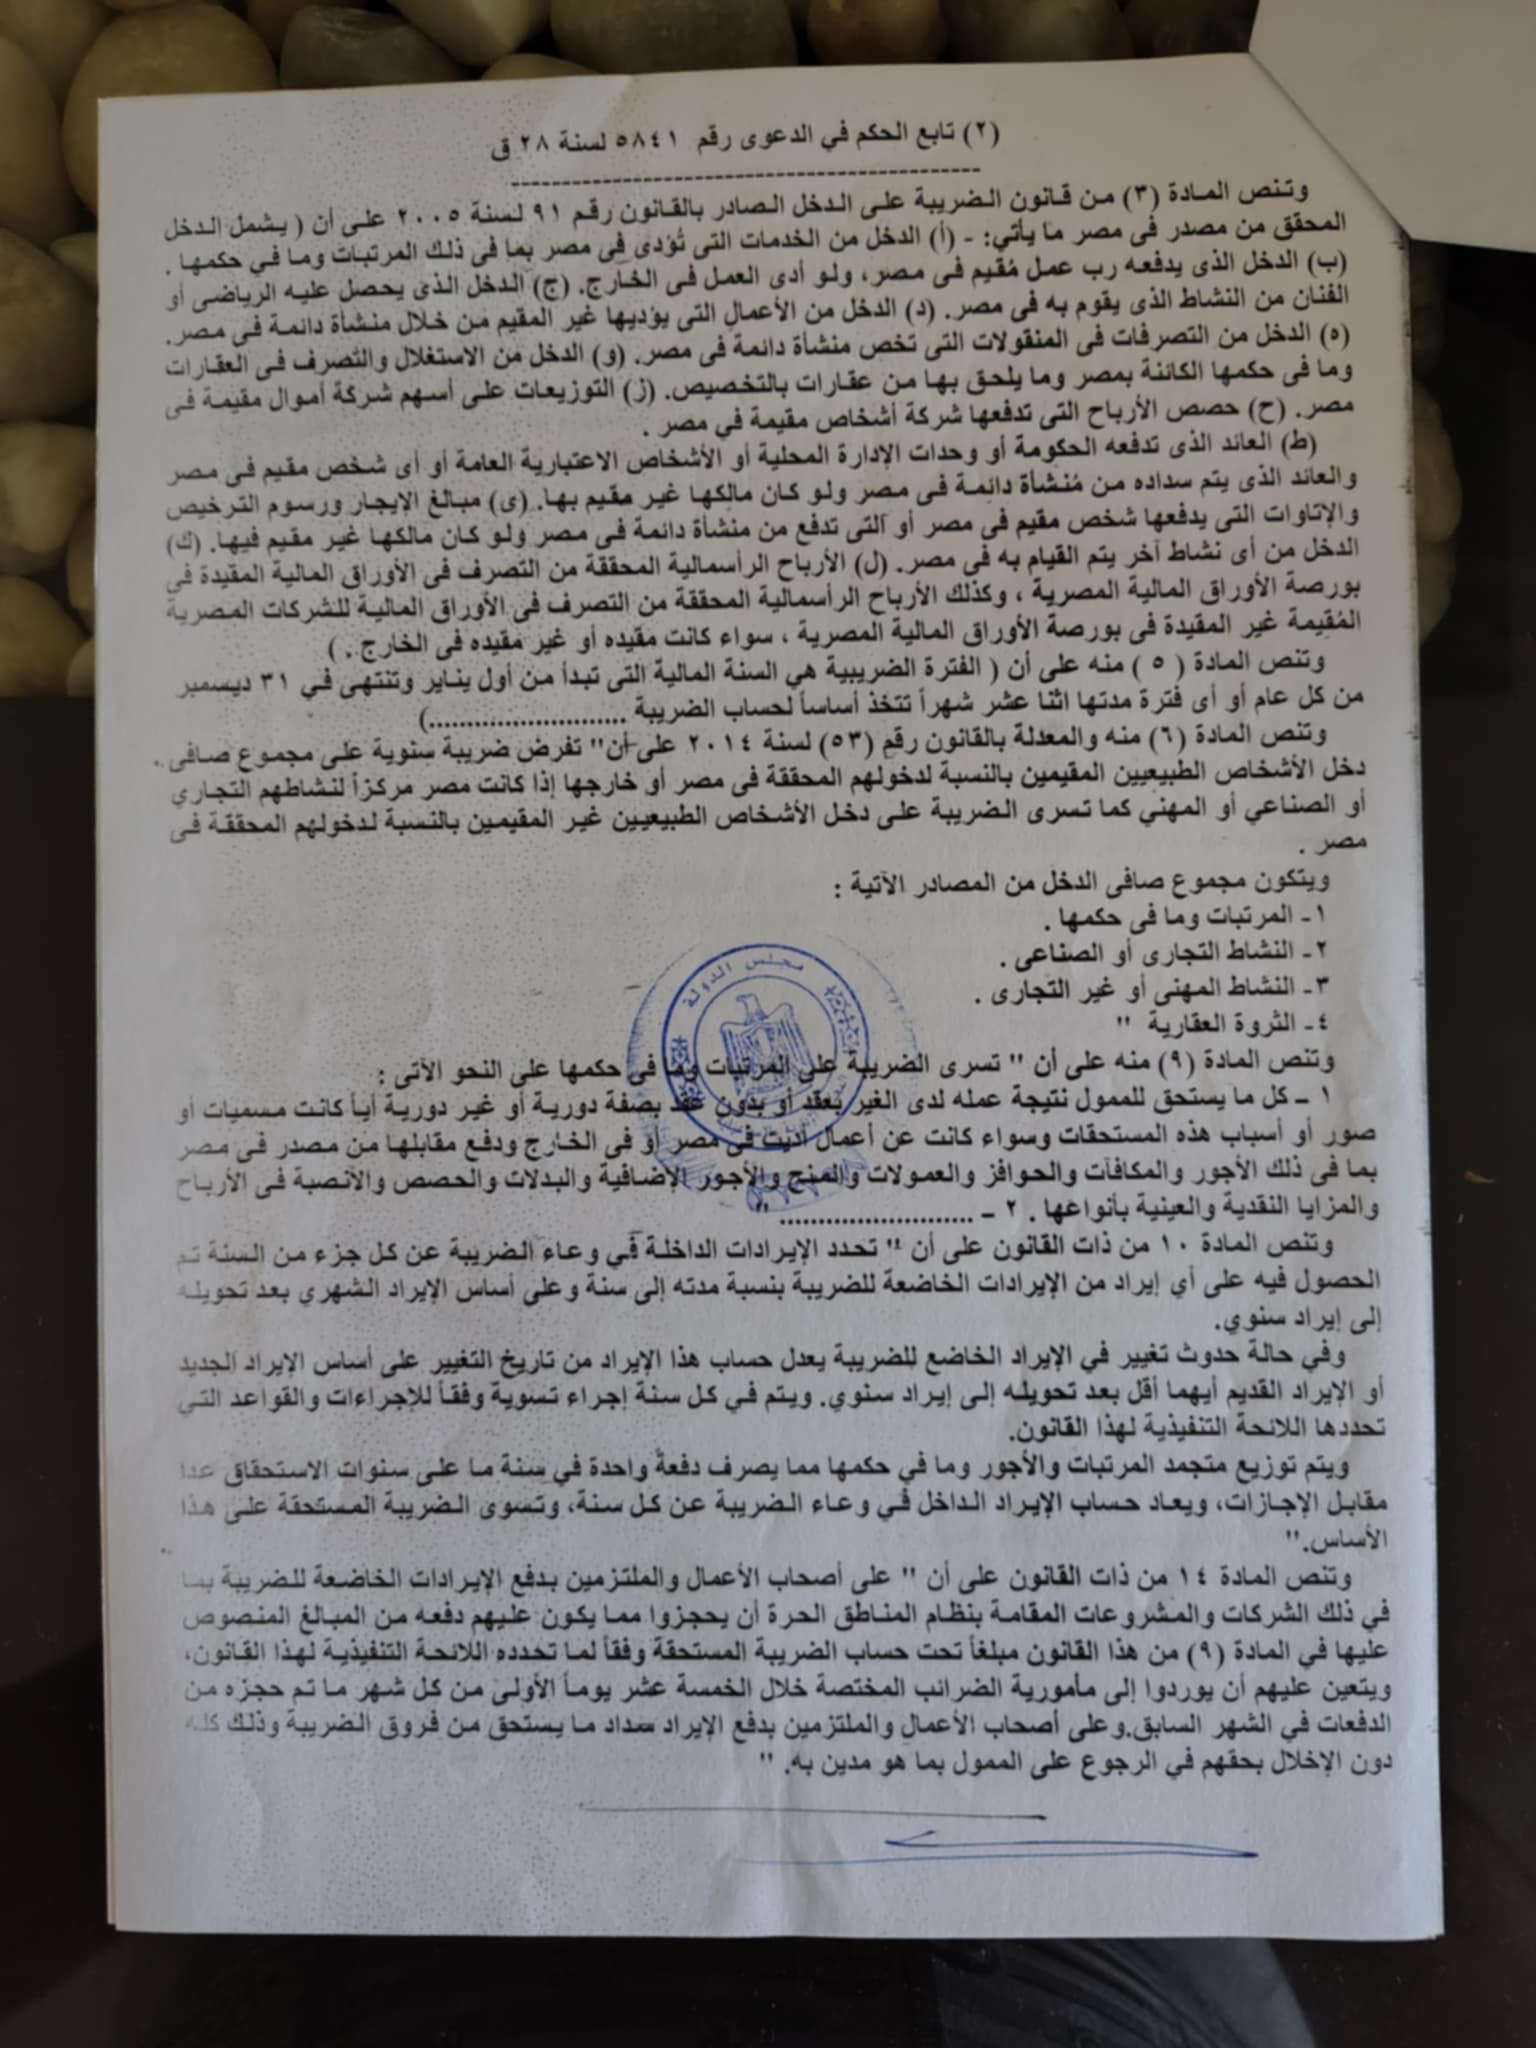 (٢) تابع الحكم في الدعوى رقم ٥٨٤١ لسنة ٢٨ ق
وتنص المادة (٣) من قانون الضريبة على الدخل الصادر بالقانون رقم ٩١ لسنة ٢٠٠٥ على أن ( يشمل الدخل
المحقق من مصدر فى مصر ما يأتي: - (أ) الدخل من الخدمات التى تُؤدى فى مصر بما فى ذلك المرتبات وما في حكمها .
(ب) الدخل الذى يدفعه رب عمل مُقيم فى مصر، ولو أدى العمل فى الخارج. (ج) الدخل الذى يحصل عليه الرياضى أو
الفنان من النشاط الذى يقوم به فى مصر. (د) الدخل من الأعمال التى يؤديها غير المقيم من خلال منشأة دائمة فى مصر.
(ه) الدخل من التصرفات فى المنقولات التى تخص منشأة دائمة فى مصر. (و) الدخل من الاستغلال والتصرف فى العقارات
وما فى حكمها الكائنة بمصر وما يلحق بها من عقارات بالتخصيص. (ز) التوزيعات على أسهم شركة أموال مقيمة فى
مصر. (ح) حصص الأرباح التى تدفعها شركة أشخاص مقيمة في مصر .
(ط) العائد الذى تدفعه الحكومة أو وحدات الإدارة المحلية أو الأشخاص الاعتبارية العامة أو أى شخص مقيم فى مصر
والعائد الذى يتم سداده من مُنشأة دائمة فى مصر ولو كان مالكها غير مقيم بها. (ى) مبالغ الإيجار ورسوم الترخيص
والإتاوات التى يدفعها شخص مقيم فى مصر أو التى تدفع من منشأة دائمة فى مصر ولو كان مالكها غير مقيم فيها. (ك)
الدخل من أى نشاط آخر يتم القيام به فى مصر. (ل) الأرباح الرأسمالية المحققة من التصرف فى الأوراق المالية المقيدة فى
بورصة الأوراق المالية المصرية ، وكذلك الأرباح الرأسمالية المحققة من التصرف فى الأوراق المالية للشركات المصرية
المُقيمة غير المقيدة فى بورصة الأوراق المالية المصرية ، سواء كانت مقيده أو غير مقيده فى الخارج . )
وتنص المادة ( ٥ ) منه على أن ( الفترة الضريبية هي السنة المالية التى تبدأ من أول يناير وتنتهى في ٣١ ديسمبر
من كل عام أو أى فترة مدتها اثنا عشر شهراً تتخذ أساساً لحساب الضريبة ..........................)
وتنص المادة (٦) منه والمعدلة بالقانون رقم (٥٣) لسنة ٢٠١٤ على أن" تفرض ضريبة سنوية على مجموع صافى
دخل الأشخاص الطبيعيين المقيمين بالنسبة لدخولهم المحققة فى مصر أو خارجها إذا كانت مصر مركزاً لنشاطهم التجاري
أو الصناعي أو المهني كما تسرى الضريبة على دخل الأشخاص الطبيعيين غير المقيمين بالنسبة لدخولهم المحققة فى
مصر .
ويتكون مجموع صافى الدخل من المصادر الآتية :
١- المرتبات وما فى حكمها .
٢- النشاط التجارى أو الصناعى .
٣- النشاط المهنى أو غير التجارى .
٤- الثروة العقارية "
مجلس الدولة
وتنص المادة (٩) منه على أن " تسرى الضريبة على المرتبات وما فى حكمها على النحو الآتى :
١ – كل ما يستحق للممول نتيجة عمله لدى الغير بعقد أو بدون عقد بصفة دورية أو غير دورية أياً كانت مسميات أو
صور أو أسباب هذه المستحقات وسواء كانت عن أعمال أديت فى مصر أو فى الخارج ودفع مقابلها من مصدر فى مصر
بما فى ذلك الأجور والمكافآت والحوافز والعمولات والمنح والأجور الإضافية والبدلات والحصص والأنصبة فى الأرباح
والمزايا النقدية والعينية بأنواعها . ٢ – ......................... "
وتنص المادة ١٠ من ذات القانون على أن " تحدد الإيرادات الداخلة في وعاء الضريبة عن كل جزء من السنة تم
الحصول فيه على أي إيراد من الإيرادات الخاضعة للضريبة بنسبة مدته إلى سنة وعلى أساس الإيراد الشهري بعد تحويله
إلى إيراد سنوي.
وفي حالة حدوث تغيير في الإيراد الخاضع للضريبة يعدل حساب هذا الإيراد من تاريخ التغيير على أساس الإيراد الجديد
أو الإيراد القديم أيهما أقل بعد تحويله إلى إيراد سنوي. ويتم في كل سنة إجراء تسوية وفقاً للإجراءات والقواعد التي
تحددها اللائحة التنفيذية لهذا القانون.
ويتم توزيع متجمد المرتبات والأجور وما في حكمها مما يصرف دفعةً واحدة في سنة ما على سنوات الاستحقاق عدا
مقابل الإجازات، ويعاد حساب الإيراد الداخل في وعاء الضريبة عن كل سنة، وتسوى الضريبة المستحقة على هذا
الأساس."
وتنص المادة ١٤ من ذات القانون على أن " على أصحاب الأعمال والملتزمين بدفع الإيرادات الخاضعة للضريبة بما
في ذلك الشركات والمشروعات المقامة بنظام المناطق الحرة أن يحجزوا مما يكون عليهم دفعه من المبالغ المنصوص
عليها في المادة (٩) من هذا القانون مبلغاً تحت حساب الضريبة المستحقة وفقاً لما تحدده اللائحة التنفيذية لهذا القانون،
ويتعين عليهم أن يوردوا إلى مأمورية الضرائب المختصة خلال الخمسة عشر يوماً الأولى من كل شهر ما تم حجزه من
الدفعات في الشهر السابق.وعلى أصحاب الأعمال والملتزمين بدفع الإيراد سداد ما يستحق من فروق الضريبة وذلك كله
دون الإخلال بحقهم في الرجوع على الممول بما هو مدين به. "